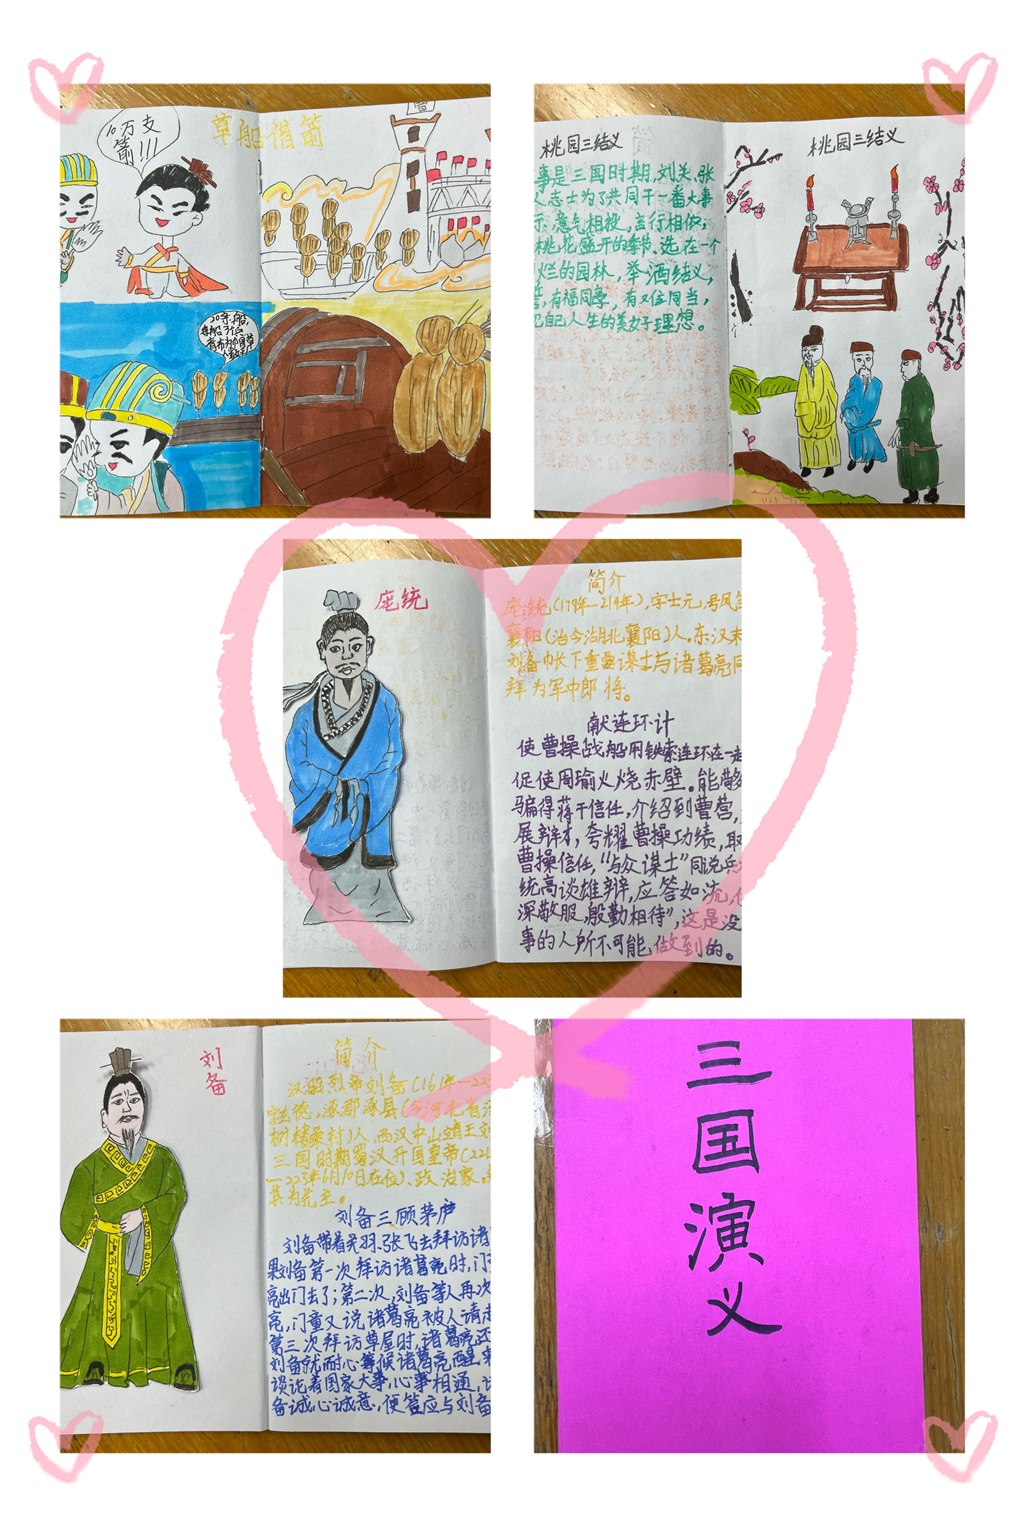 草船借箭
10万支
箭!!!
20条船,
桃园三结义
事是三国时期,刘关张
人志士为了共同干一番大事
意气相投,言行相依,
桃花盛开的季节,选在一个
烂的园林,举酒结义,
有福同享,有难同当,
自己人生的美好理想。
桃园三结义
庞统
简介
庞统(179年—214年),字士元,号凤
襄阳(治今湖北襄阳)人。东汉末
刘备帐下重要谋士与诸葛亮同
拜为军中郎将。
献连环计
使曹操战船用铁索连环在一起
促使周瑜火烧赤壁。能够
骗得蒋干信任,介绍到曹营,
展辩才,夸耀曹操功绩,取
曹操信任,“与众谋士”同说兵
统高谈雄辩,应答如流,
深敬服,殷勤相待”,这是没
事的人所不可能做到的。
刘备
简介
汉昭烈帝刘备(161年—22
字玄德,涿郡涿县(今河北省
树楼桑村)人,西汉中山靖王
三国时期蜀汉开国皇帝(221
—223年6月10日在位)、政治家,
其为先主。
刘备三顾茅庐
刘备带着关羽、张飞去拜访诸
果刘备第一次拜访诸葛亮时,门
亮出门去了;第二次,刘备等人再次
亮,门童又说诸葛亮被人请走
第三次拜访草屋时,诸葛亮还
刘备就耐心等候诸葛亮醒来
谈论着国家大事,心事相通,
备诚心诚意,便答应与刘备
三国演义